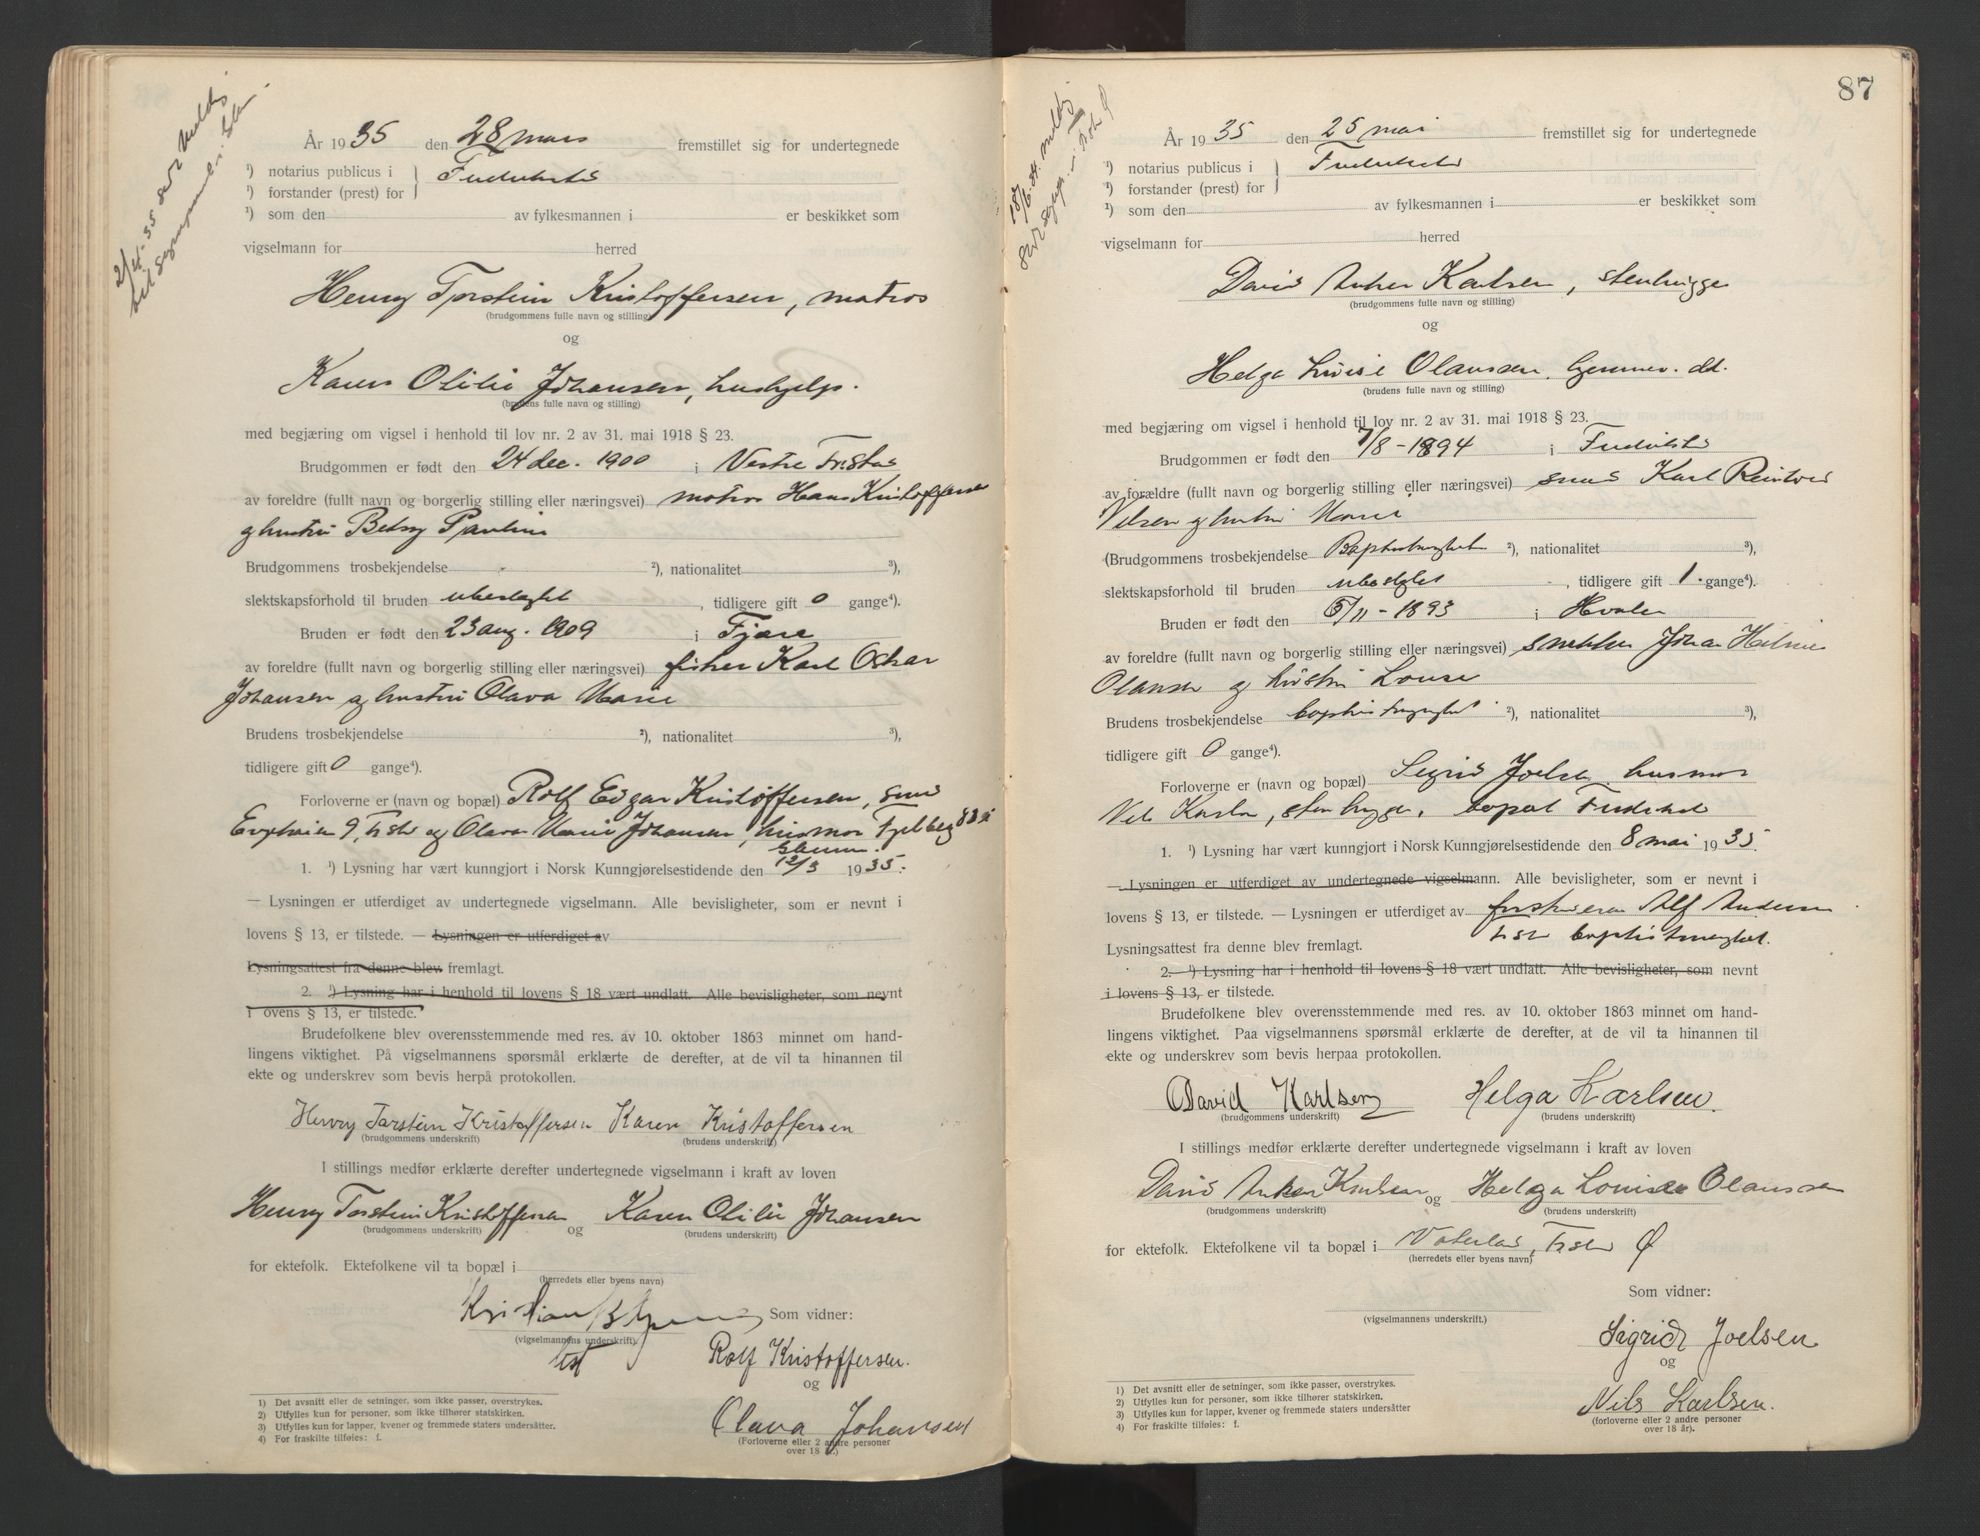 År 1935 den 28 mars fremstillet sig for undertegnede
¹) notarius publicus i
¹) forstander (prest) for
¹) som den av fylkesmannen i er beskikket som
vigselmann for herred
Henry Torstein Kristoffersen, matros
(brudgommens fulle navn og stilling)
og
Karen Otilie Johansen, hushjelp.
(brudens fulle navn og stilling)
med begjæring om vigsel i henhold til lov nr. 2 av 31. mai 1918 § 23.
Brudgommen er født den 24 dec. 1900 i Vestre Fr.stad
av foreldre (fullt navn og borgerlig stilling eller næringsvei) matros Hans Kristoffersen
og hustru Betsy Pauline
Brudgommens trosbekjendelse ²), nationalitet ³),
slektskapsforhold til bruden ubeslegtet, tidligere gift 0 gange⁴).
Bruden er født den 23 aug. 1909 i Fjære
av foreldre (fullt navn og borgerlig stilling eller næringsvei) fisker Karl Oskar
Johansen og hustru Olava Marie
Brudens trosbekjendelse ²), nationalitet ³),
tidligere gift 0 gange⁴).
Forloverne er (navn og bopæl) Rolf Edgar Kristoffersen,
9, Fr.stad og Olava Marie Johansen, husmor
Glemm.
1. ¹) Lysning har vært kunngjort i Norsk Kunngjørelsestidende den 12/3 1935.
— Lysningen er utferdiget av undertegnede vigselmann. Alle bevisligheter, som er nevnt i
lovens § 13, er tilstede. — Lysningen er utferdiget av
Lysningsattest fra denne blev fremlagt.
2. ¹) Lysning har i henhold til lovens § 18 vært undlatt. Alle bevisligheter, som nevnt
i lovens § 13, er tilstede.
Brudefolkene blev overensstemmende med res. av 10. oktober 1863 minnet om hand-
lingens viktighet. På vigselmannens spørsmål erklærte de derefter, at de vil ta hinannen til
ekte og underskrev som bevis herpå protokollen.
Henry Torstein Kristoffersen Karen Kristoffersen
(brudgommens underskrift) (brudens underskrift)
I stillings medfør erklærte derefter undertegnede vigselmann i kraft av loven
Henry Torstein Kristoffersen og Karen Otilie Johansen
(brudgommens underskrift) (brudens underskrift)
for ektefolk. Ektefolkene vil ta bopæl i
(herredets eller byens navn)
Kristian Som vidner:
(vigselmannens underskrift)
Rolf Kristoffersen.
og
Olava Johansen
(Forloverne eller 2 andre personer
over 18 år.)
1) Det avsnitt eller de setninger, som ikke passer, overstrykes.
2) Utfylles kun for personer, som ikke tilhører statskirken.
3) Utfylles kun for lapper, kvener og fremmede staters undersåtter.
4) For fraskilte tilføies: f.
87
År 1935 den 25 mai fremstillet sig for undertegnede
¹) notarius publicus i
¹) forstander (prest) for
¹) som den av fylkesmannen i er beskikket som
vigselmann for herred
David Anker Karlsen, stenhugger
(brudgommens fulle navn og stilling)
og
Helga Lovise Olaussen, hjemmev. dd.
(brudens fulle navn og stilling)
med begjæring om vigsel i henhold til lov nr. 2 av 31. mai 1918 § 23.
Brudgommen er født den 7/8-1894 i
av forældre (fullt navn og borgerlig stilling eller næringsvei) Karl
og hustru
(Brudgommens trosbekjendelse ²), nationalitet ³),
slektskapsforhold til bruden ubeslegtet, tidligere gift 1 gange⁴).
Bruden er født den 5/11-1893 i Hvaler
av foreldre (fullt navn og borgerlig stilling eller næringsvei) snekker Johan
Olaussen og hustru Lovise
Brudens trosbekjendelse ²), nationalitet ³),
tidligere gift 0 gange⁴).
Forloverne er (navn og bopæl) Sigrid Joelsen husmor
Nils Karlsen, stenhugger, bopæl
1. ¹) Lysning har vært kunngjort i Norsk Kunngjørelsestidende den 8 mai 1935.
— Lysningen er utferdiget av undertegnede vigselmann. Alle bevisligheter, som er nevnt i
lovens § 13, er tilstede. — Lysningen er utferdiget av forstanderen Alf Andersen
Lysningsattest fra denne blev fremlagt. Fr.stad baptistmenighet.
2. ¹) Lysning har i henhold til lovens § 18 vært undlatt. Alle bevisligheter, som nevnt
i lovens § 13, er tilstede.
Brudefolkene blev overensstemmende med res. av 10. oktober 1863 minnet om hand-
lingens viktighet. Paa vigselmannens spørsmål erklærte de derefter, at de vil ta hinannen til
ekte og underskrev som bevis herpaa protokollen.
David Karlsen Helga Karlsen.
(brudgommens underskrift) (brudens underskrift)
I stillings medfør erklærte derefter undertegnede vigselmann i kraft av loven
David Anker Karlsen og Helga Lovise Olaussen
(brudgommens underskrift) (brudens underskrift)
for ektefolk. Ektefolkene vil ta bopæl i Vaterland, Fr.stad Ø
(herredets eller byens navn)
Som vidner:
(vigselmannens underskrift)
Sigrid Joelsen
og
Nils Karlsen.
(forloverne eller 2 andre personer
over 18 år).
1) Det avsnitt eller de setninger, som ikke passer, overstrykes.
2) Utfylles kun for personer, som ikke tilhører statskirken.
3) Utfylles kun for lapper, kvener og fremmede staters undersåtter
4) For fraskilte tilføies: f.